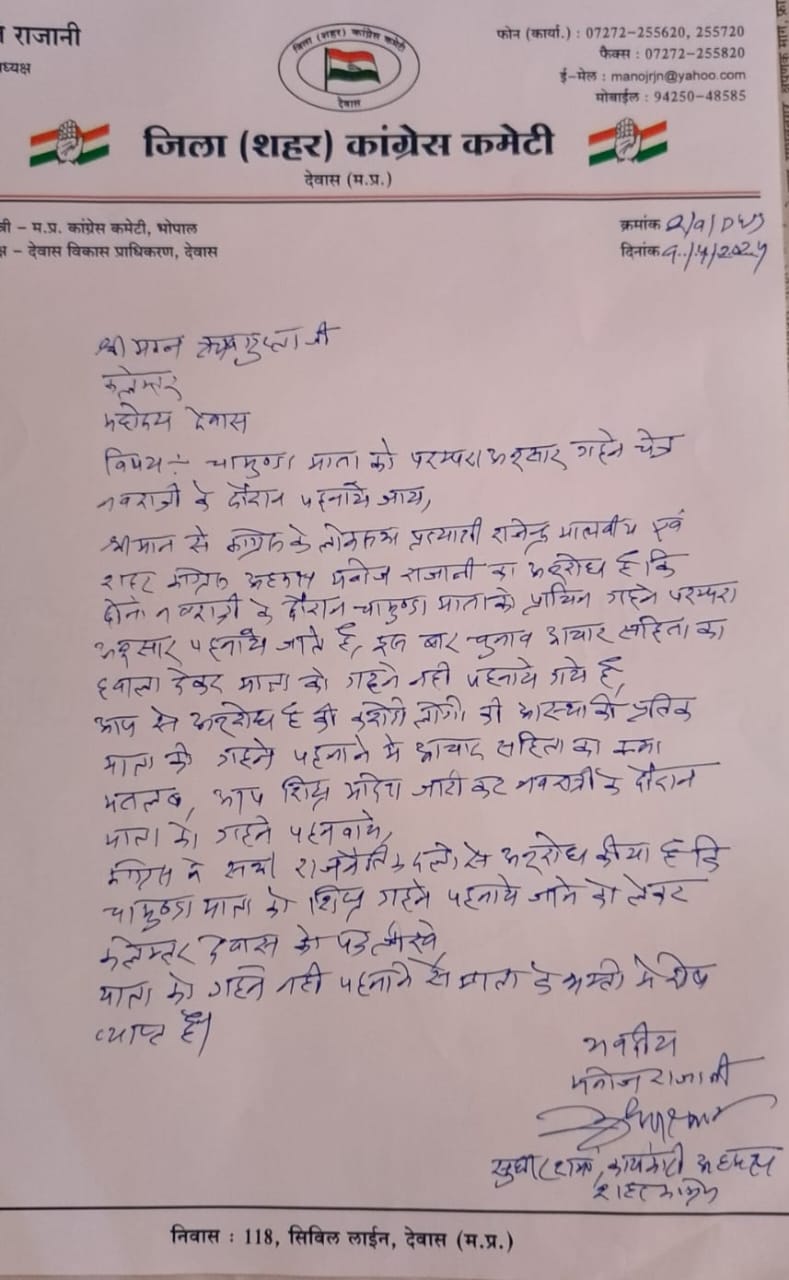 राजानी
ध्यक्ष
जिला (शहर) कांग्रेस कमेटी
देवास
फोन (कार्या.) : 07272-255620, 255720
फैक्स : 07272-255820
ई-मेल : manojrjn@yahoo.com
मोबाईल : 94250-48585
जिला (शहर) कांग्रेस कमेटी
देवास (म.प्र.)
त्री – म.प्र. कांग्रेस कमेटी, भोपाल
क्ष – देवास विकास प्राधिकरण, देवास
क्रमांक
दिनांक
श्रीमान गुप्ता जी
कलेक्टर
महोदय देवास
विषय :- चामुण्डा माता को परम्परा अनुसार गहने चेत्र
नवरात्री के दौरान पहनाये जाय,
श्रीमान से कांग्रेस के लोकसभा प्रत्याशी राजेन्द्र मालवीय एवं
शहर कांग्रेस अध्यक्ष मनोज राजानी का अनुरोध है कि
दोनो नवरात्री के दौरान चामुण्डा माता को प्राचिन गहने परम्परा
अनुसार पहनाये जाते है, इस बार चुनाव आचार संहिता का
हवाला देकर माता को गहने नही पहनाये गये है,
आप से अनुरोध है की करोडो लोगो की आस्था की प्रतिक
माता को गहने पहनाने मे आचार संहिता का क्या
मतलब, आप शिघ्र आदेश जारी कर नवरात्री के दौरान
माता को गहने पहनवाये,
कांग्रेस ने सभी राजनैतिक दलो से अनुरोध कीया है कि
चामुण्डा माता को शिघ्र गहने पहनाये जाने को लेकर
कलेक्टर देवास को पत्र लीखे
माता को गहने नही पहनाने से माता के भक्तो मे रोष
व्याप्त है।
भवदीय
मनोज राजानी
सुधीर शर्मा, कार्यकारी अध्यक्ष
शहर कांग्रेस
निवास : 118, सिविल लाईन, देवास (म.प्र.)